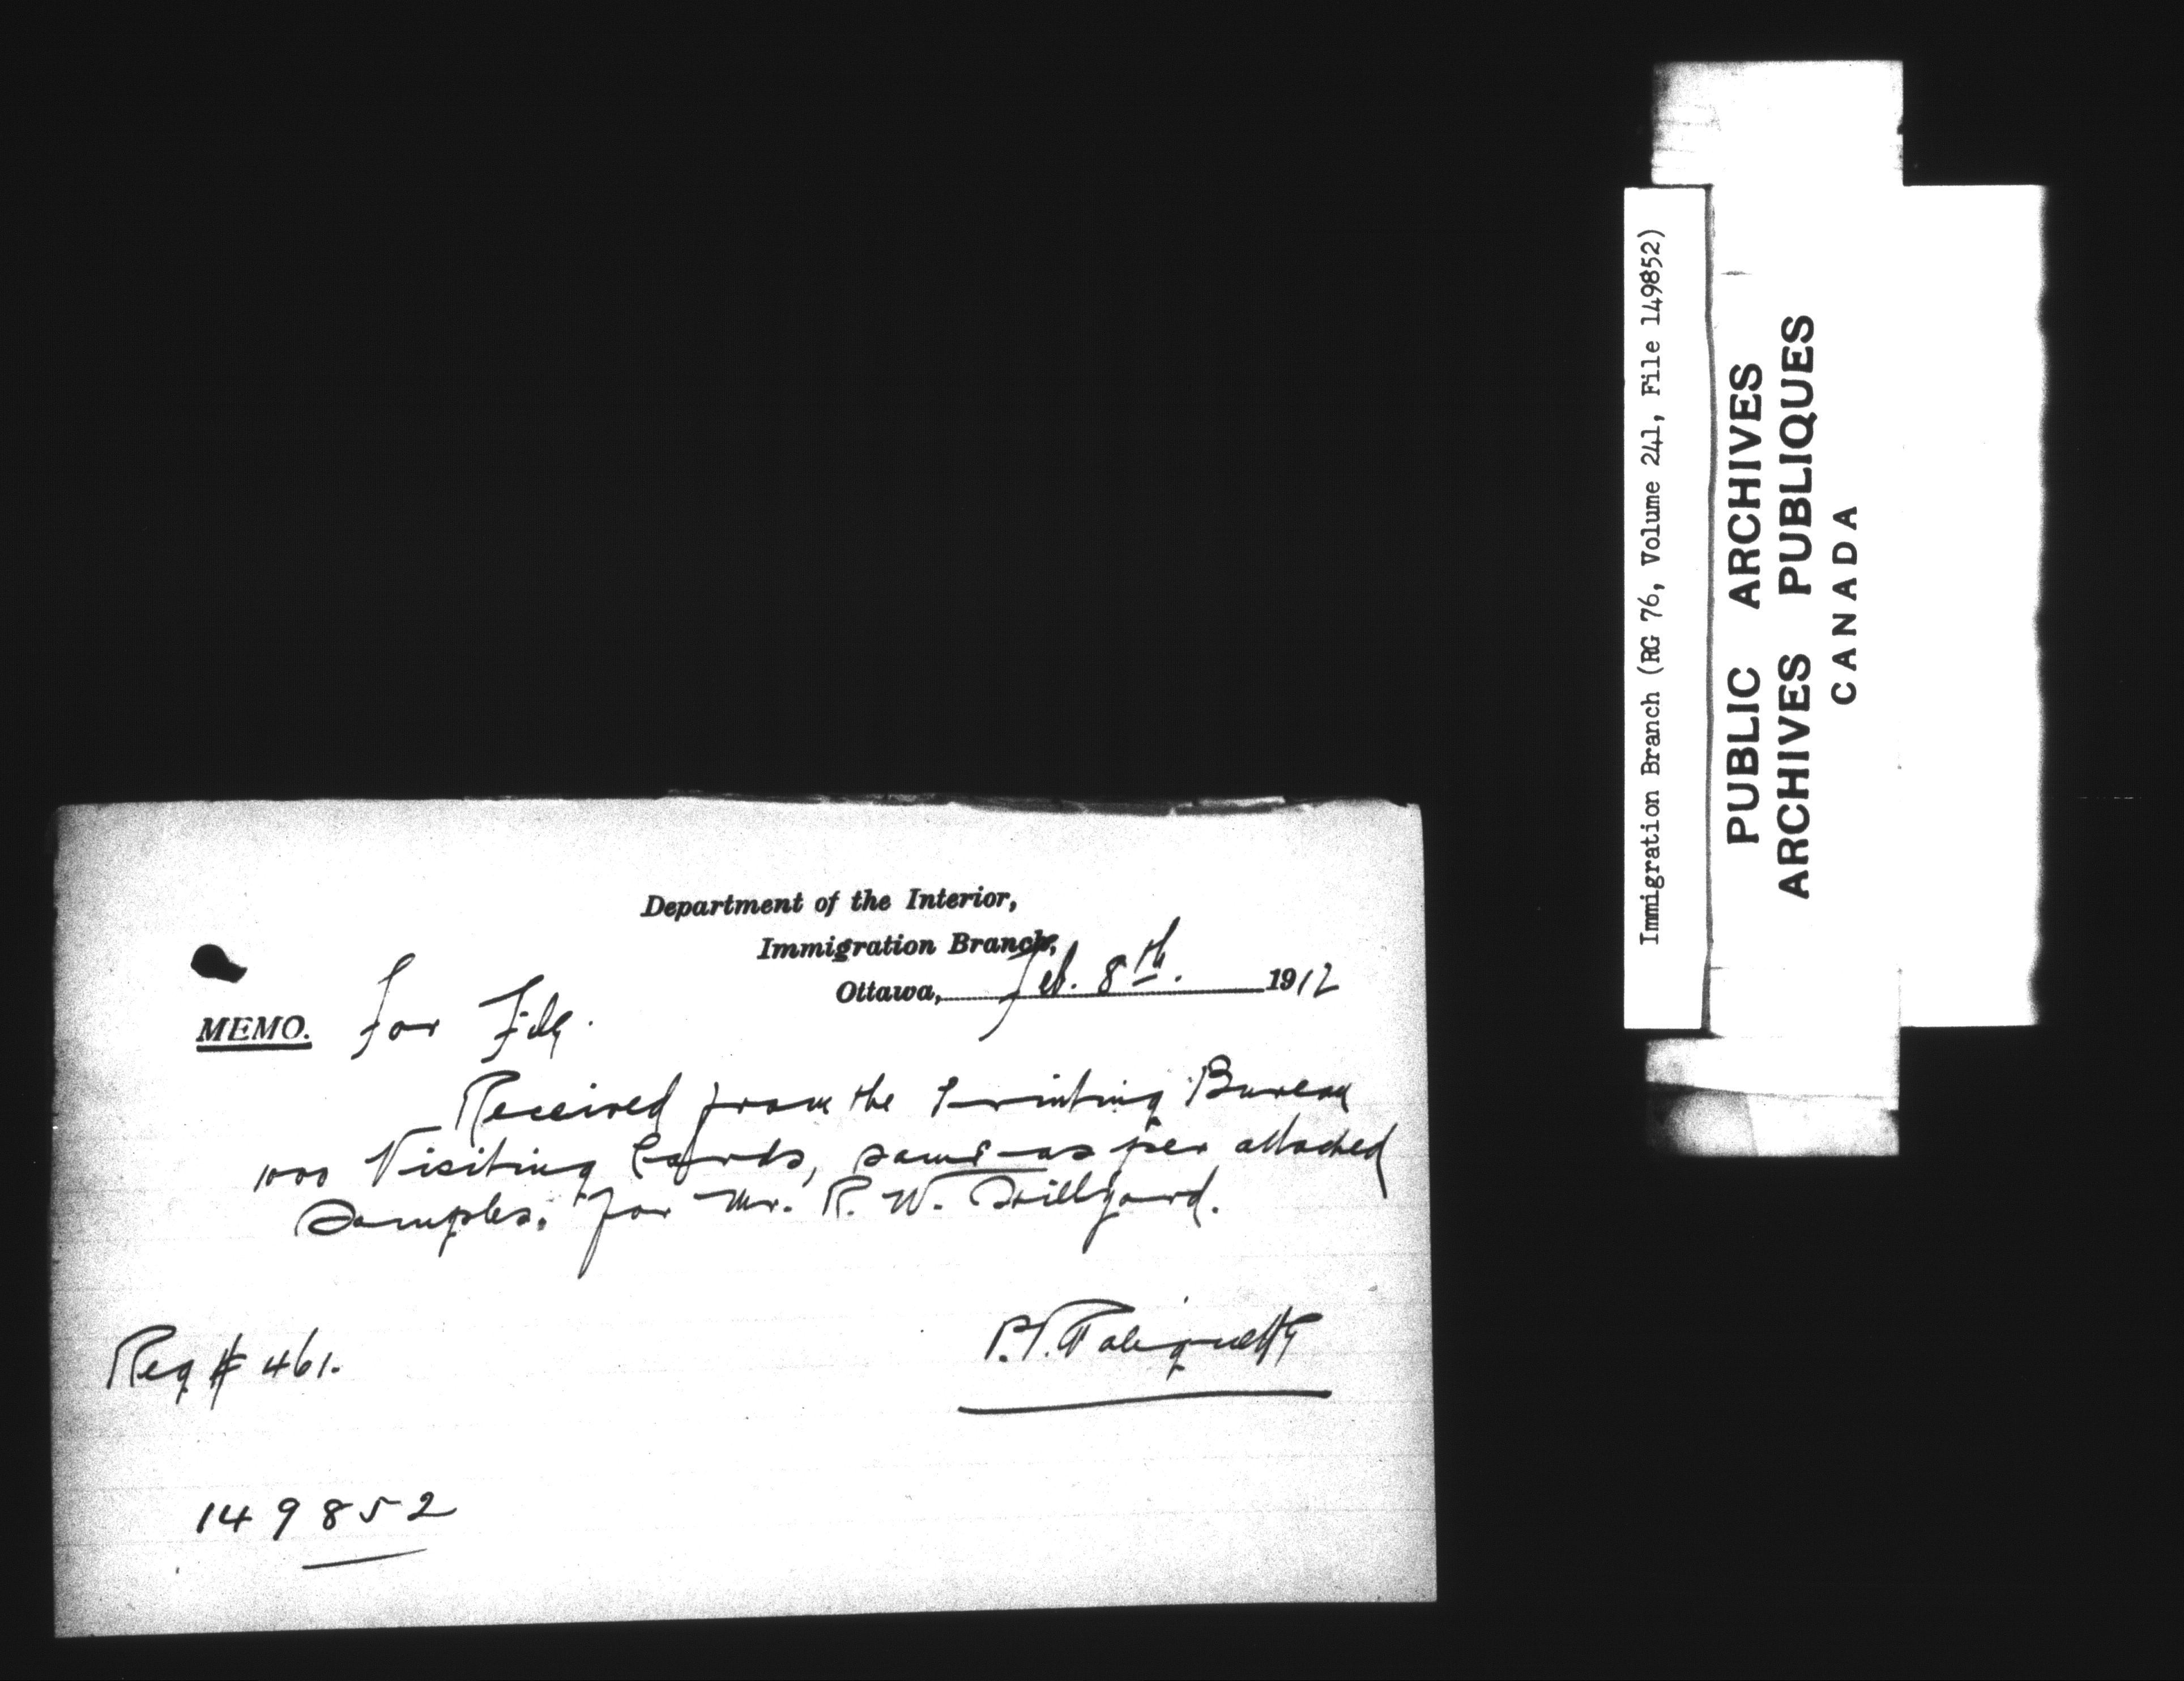 Department of the Interior,
Immigration Branch,
Ottawa, Feb. 8th. 1912
MEMO. for File.
Received from the Printing Bureau
1000 Visiting Cards, same as per attached
Samples. for Mr. R. W. Hillyard.
Req # 461.
149852
Immigration Branch (RG 76, Volume 241, File 149852)
PUBLIC ARCHIVES
ARCHIVES PUBLIQUES
CANADA